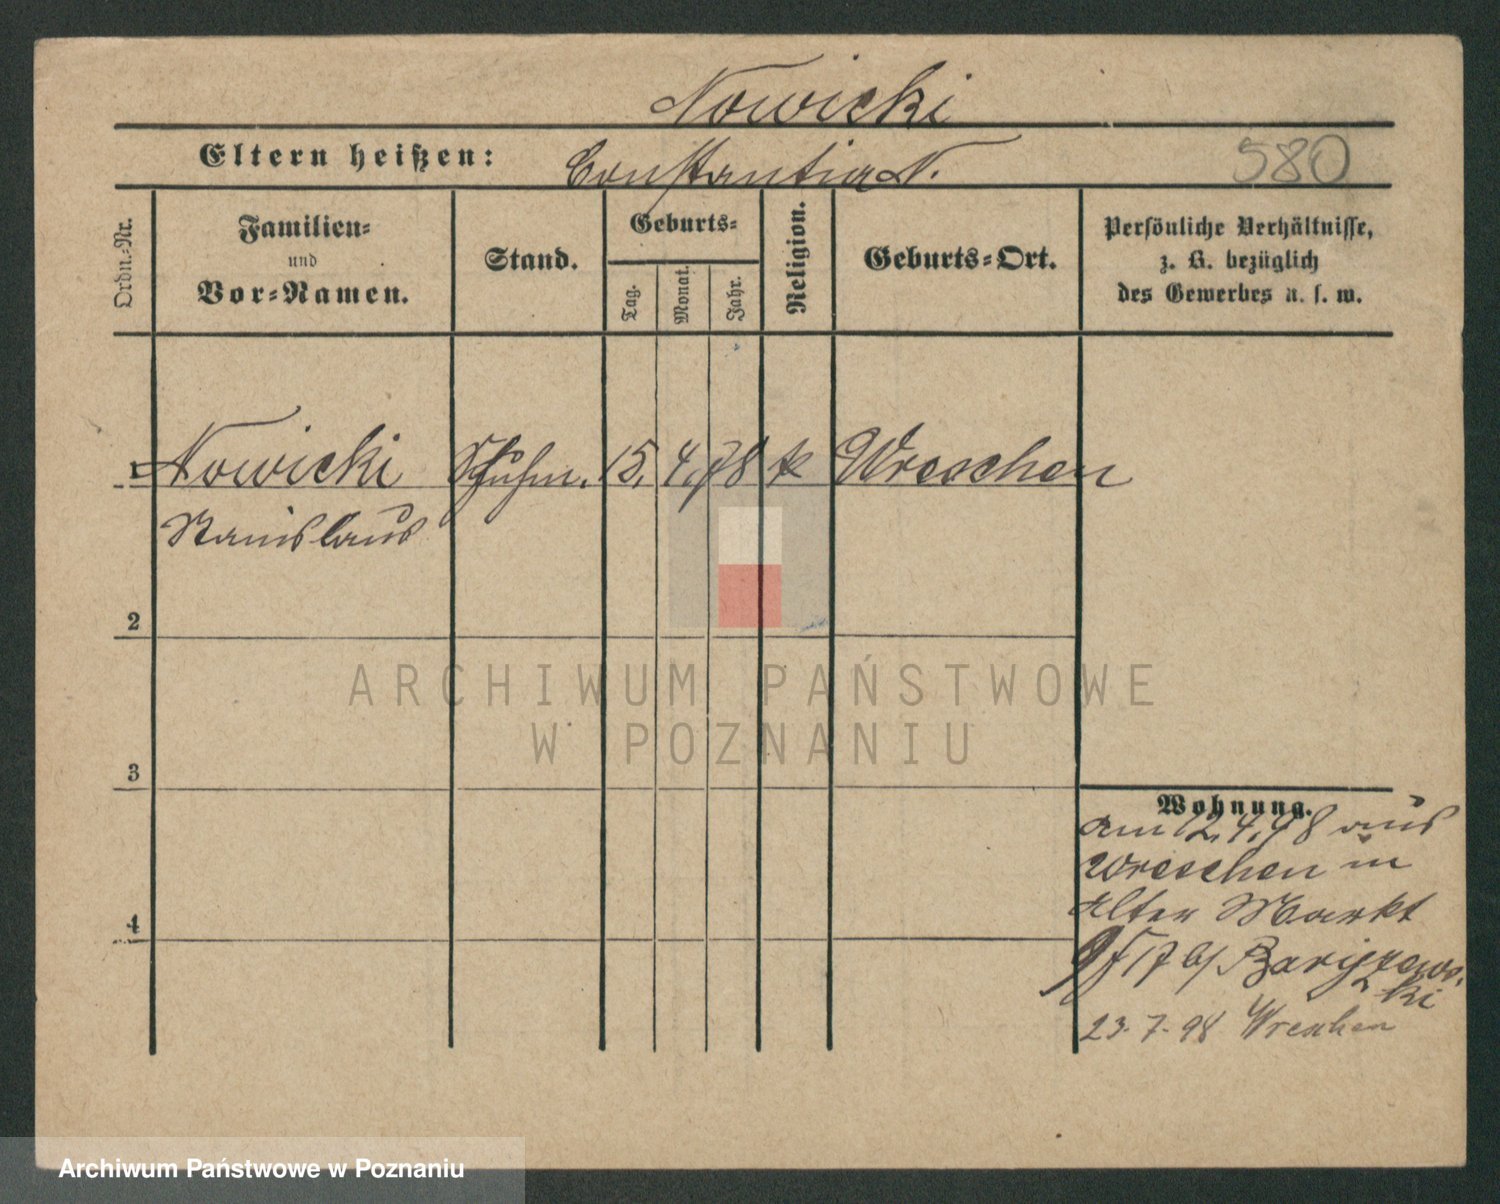 Nowicki
Eltern heißen: Constantia N. 580
Ordn.-Nr.
Familien-
und
Vor-Namen.
Stand.
Geburts-
Tag.
Monat.
Jahr.
Religion.
Geburts-Ort.
Persönliche Verhältnisse,
z. B. bezüglich
des Gewerbes u. s. w.
1 Nowicki Schuhm. 15. 4. 78 k Wreschen
Stanislaus
2
3
4
Wohnung.
am 12.4.98 aus
Wreschen in
Alter Markt
17 b/
23.7.98 Wreschen
ARCHIWUM PAŃSTWOWE
W POZNANIU
Archiwum Państwowe w Poznaniu